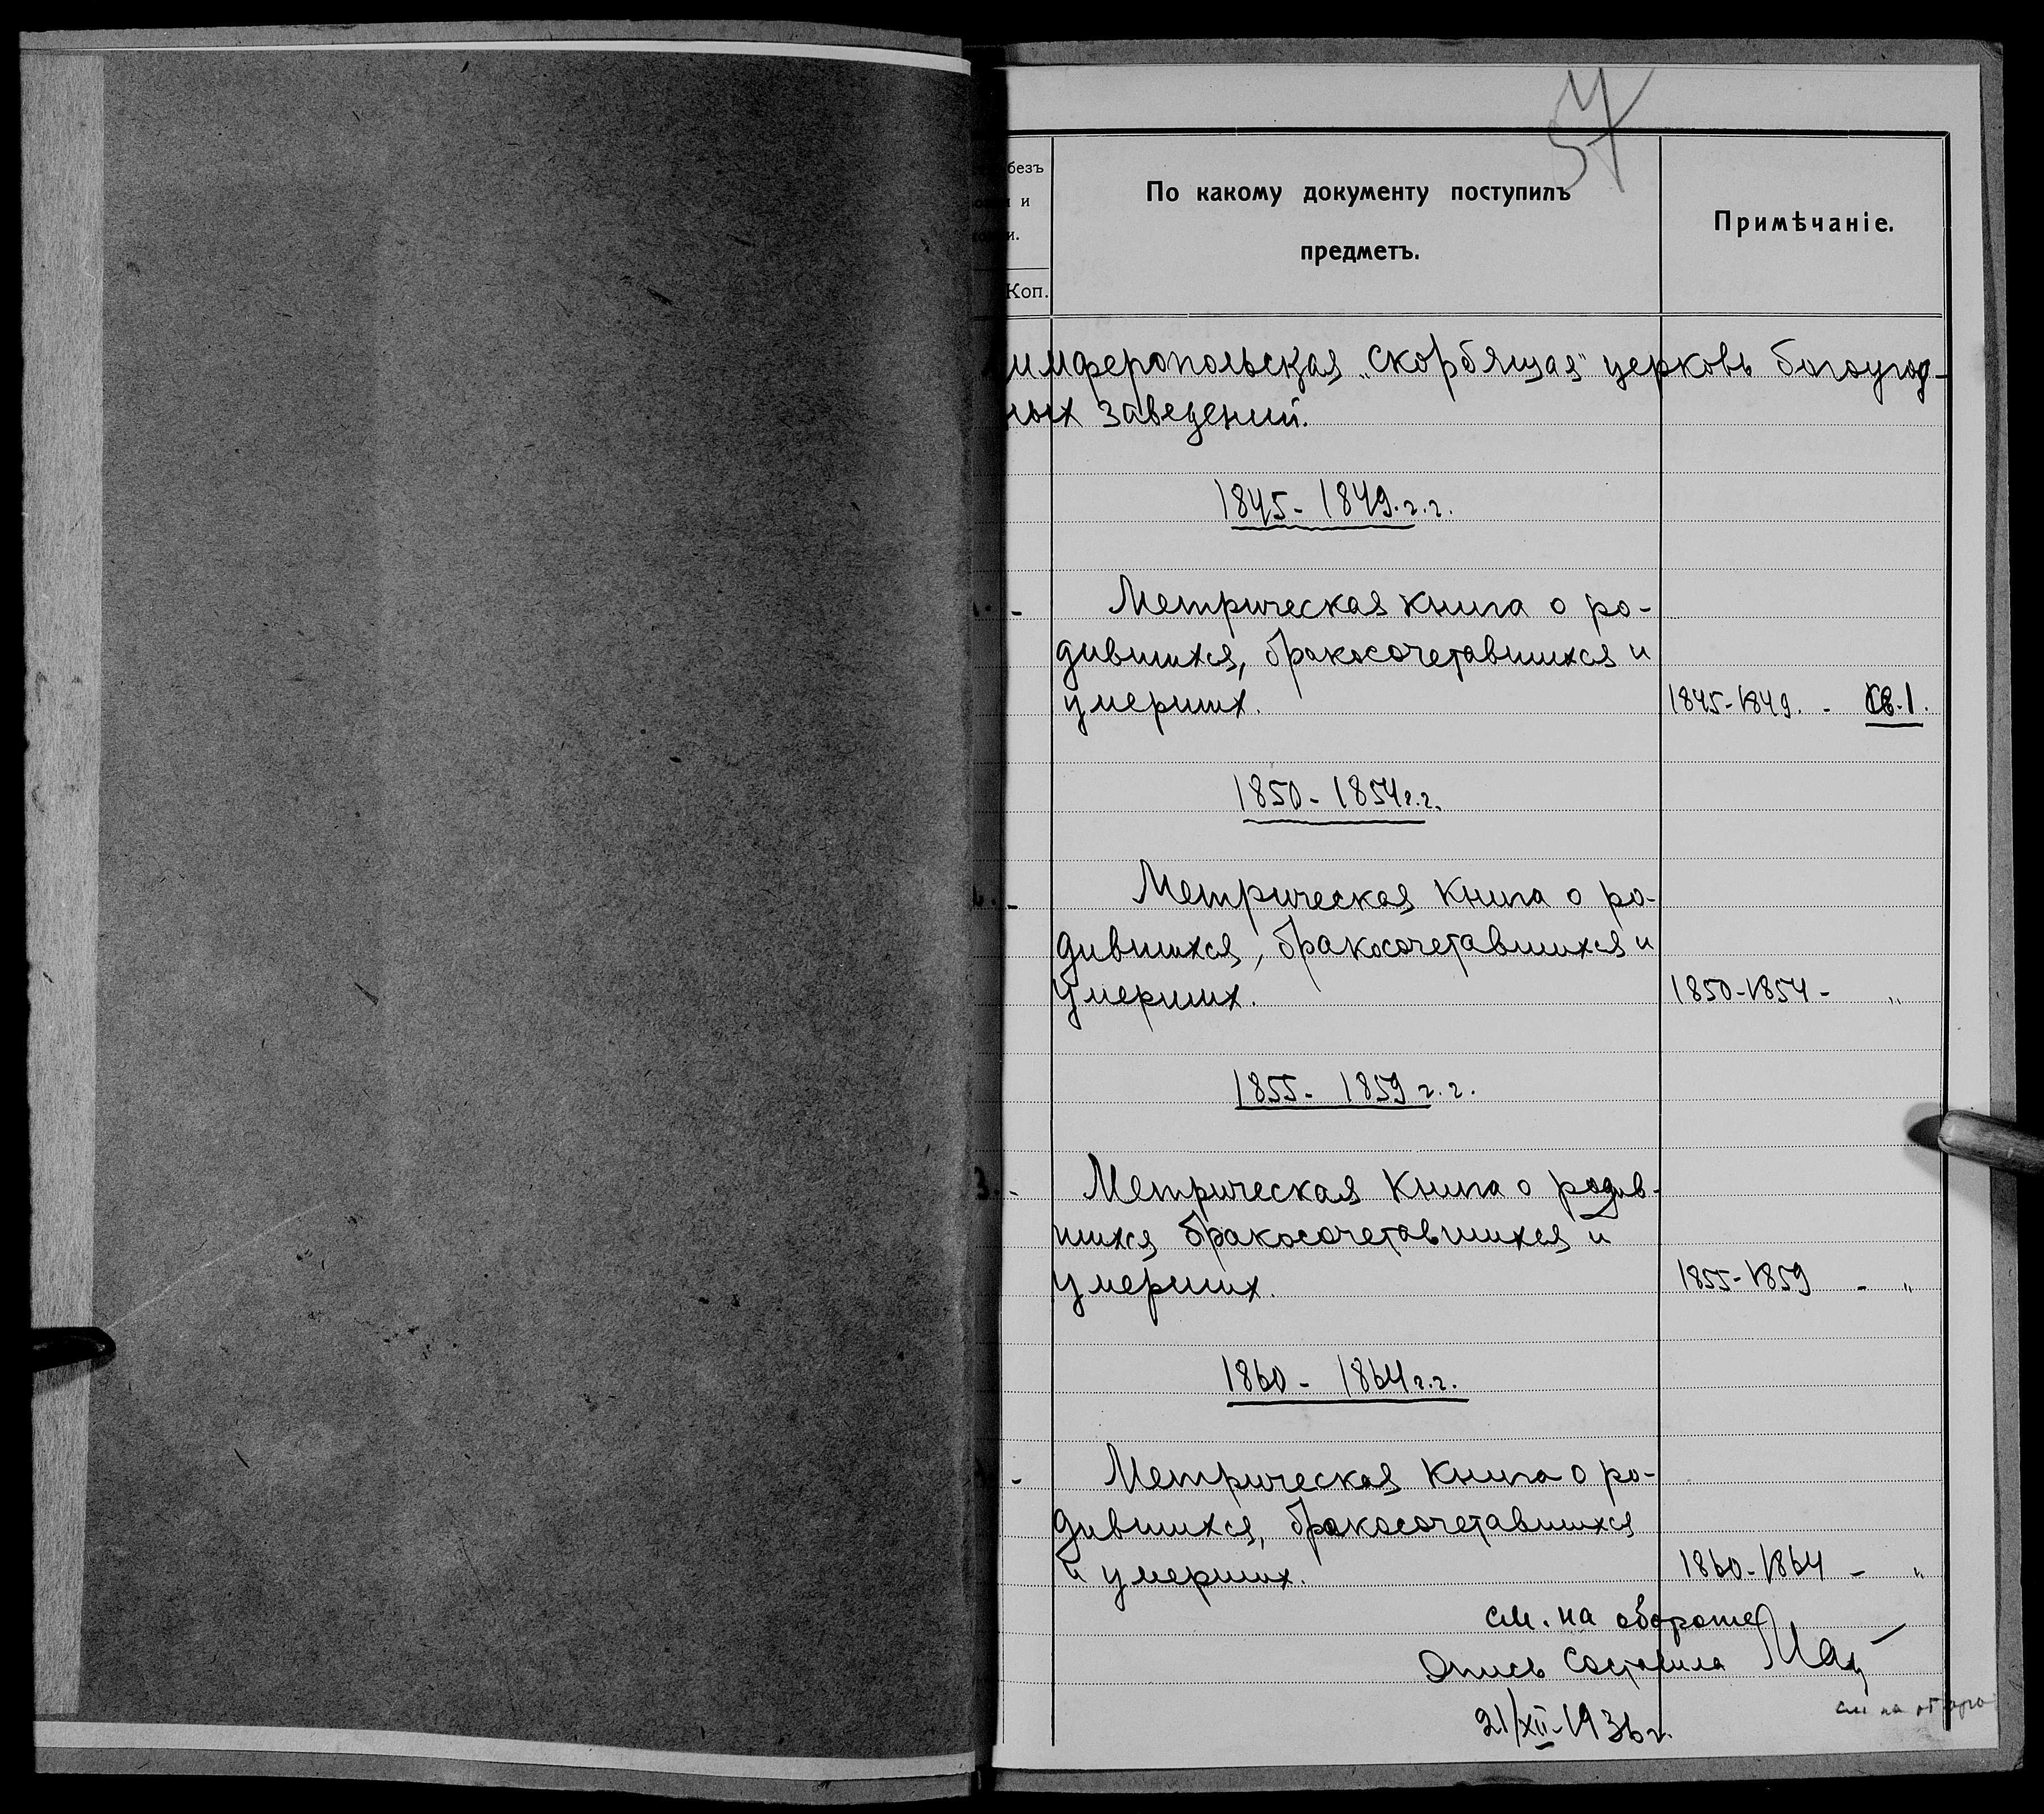 57
безъ
и
и.
Коп.
По какому документу поступилъ
предметъ.
Примѣчаніе.
имферопольская „Скорбящая" церковь богоугод-
ных заведений.
1845 - 1849 г.г.
Метрическая книга о ро-
дившихся, бракосочетавшихся и
умерших.
1845-1849. - св. 1.
1850 - 1854 г.г.
Метрическая книга о ро-
дившихся, бракосочетавшихся и
умерших.
1850-1854 - "
1855 - 1859 г.г.
3. - Метрическая книга о родив-
шихся бракосочетавшихся и
умерших.
1855-1859 - "
1860 - 1864 г.г.
- Метрическая книга о ро-
дившихся, бракосочетавшихся
и умерших.
1860-1864 - "
см. на обороте
Опись составила
21/XII-1936 г.
см на оборо